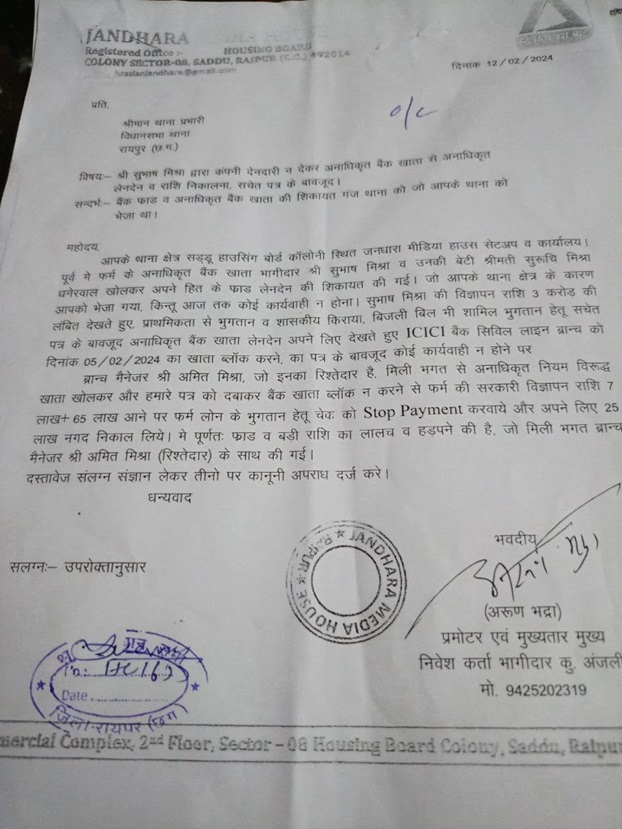 JANDHARA
Registered Office :- HOUSING BOARD
COLONY SECTOR-08, SADDU, RAIPUR (C.G.) 492014
दिनांक 12/02/2024
o/c
प्रति,
श्रीमान थाना प्रभारी
विधानसभा थाना
रायपुर (छ.ग.)
विषयः– श्री सुभाष मिश्रा द्वारा कंपनी देनदारी न देकर अनाधिकृत बैंक खाता से अनाधिकृत
लेनदेन व राशि निकालना, सचेत पत्र के बावजूद।
सन्दर्भः– बैंक फ्राड व अनाधिकृत बैंक खाता की शिकायत गंज थाना को जो आपके थाना को
भेजा था।
महोदय,
आपके थाना क्षेत्र सड्डू हाउसिंग बोर्ड कॉलोनी स्थित जनधारा मीडिया हाउस सेटअप व कार्यालय।
पूर्व मे फर्म के अनाधिकृत बैंक खाता भागीदार श्री सुभाष मिश्रा व उनकी बेटी श्रीमती सुरूचि मिश्रा
धनेरवाल खोलकर अपने हित के फ्राड लेनदेन की शिकायत की गई। जो आपके थाना क्षेत्र के कारण
आपको भेजा गया, किन्तु आज तक कोई कार्यवाही न होना। सुभाष मिश्रा की विज्ञापन राशि 3 करोड की
लंबित देखते हुए, प्राथमिकता से भुगतान व शासकीय किराया, बिजली बिल भी शामिल भुगतान हेतु सचेत
पत्र के बावजूद अनाधिकृत बैंक खाता लेनदेन अपने लिए देखते हुए ICICI बैंक सिविल लाइन ब्रान्च को
दिनांक 05/02/2024 का खाता ब्लॉक करने, का पत्र के बावजूद कोई कार्यवाही न होने पर
ब्रान्च मैनेजर श्री अमित मिश्रा, जो इनका रिश्तेदार है, मिली भगत से अनाधिकृत नियम विरूद्ध
खाता खोलकर और हमारे पत्र को दबाकर बैंक खाता ब्लॉक न करने से फर्म की सरकारी विज्ञापन राशि 7
लाख+ 65 लाख आने पर फर्म लोन के भुगतान हेतु चेक को Stop Payment करवाये और अपने लिए 25
लाख नगद निकाल लिये। मे पूर्णतः फ्राड व बडी राशि का लालच व हड़पने की है, जो मिली भगत ब्रान्च
मैनेजर श्री अमित मिश्रा (रिश्तेदार) के साथ की गई।
दस्तावेज संलग्न संज्ञान लेकर तीनो पर कानूनी अपराध दर्ज करे।
धन्यवाद
भवदीय
सलग्नः– उपरोक्तानुसार
JANDHARA MEDIA HOUSE ★ RAIPUR ★
(अरूण भद्रा)
प्रमोटर एवं मुख्यतार मुख्य
निवेश कर्ता भागीदार कु. अंजली
मो. 9425202319
Date
जिला-रायपुर (छग)
mercial Complex, 2nd Floor, Sector – 08 Housing Board Colony, Saddu, Raipu